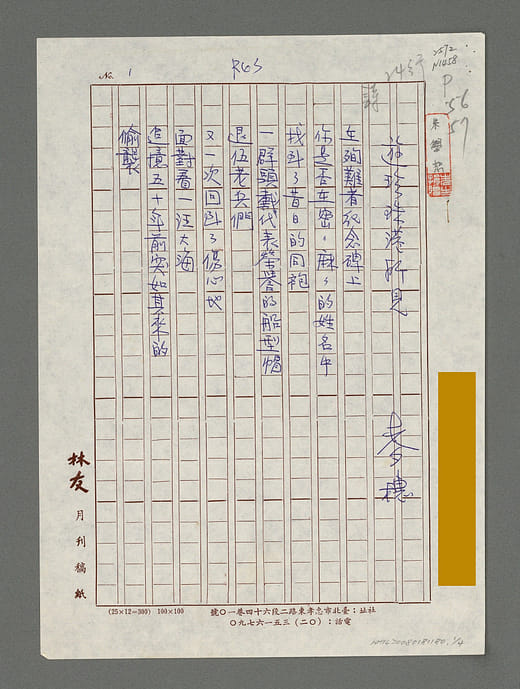 No. 1
24行
詩
P
56
57
遊珍珠港所見
麥穗
在殉難者紀念碑上
你是否在密々麻々的姓名中
找到了昔日的同袍
一群頭戴代表榮譽的船型帽
退伍老兵們
又一次回到了傷心地
面對着一汪大海
追憶五十年前突如其來的
偷襲
林友
月刊稿紙
(25×12=300) 100×100
社址：臺北市忠孝東路二段六十四巷一〇號
電話：(〇二)三五一六七九〇
NMTL20080181180 1/4